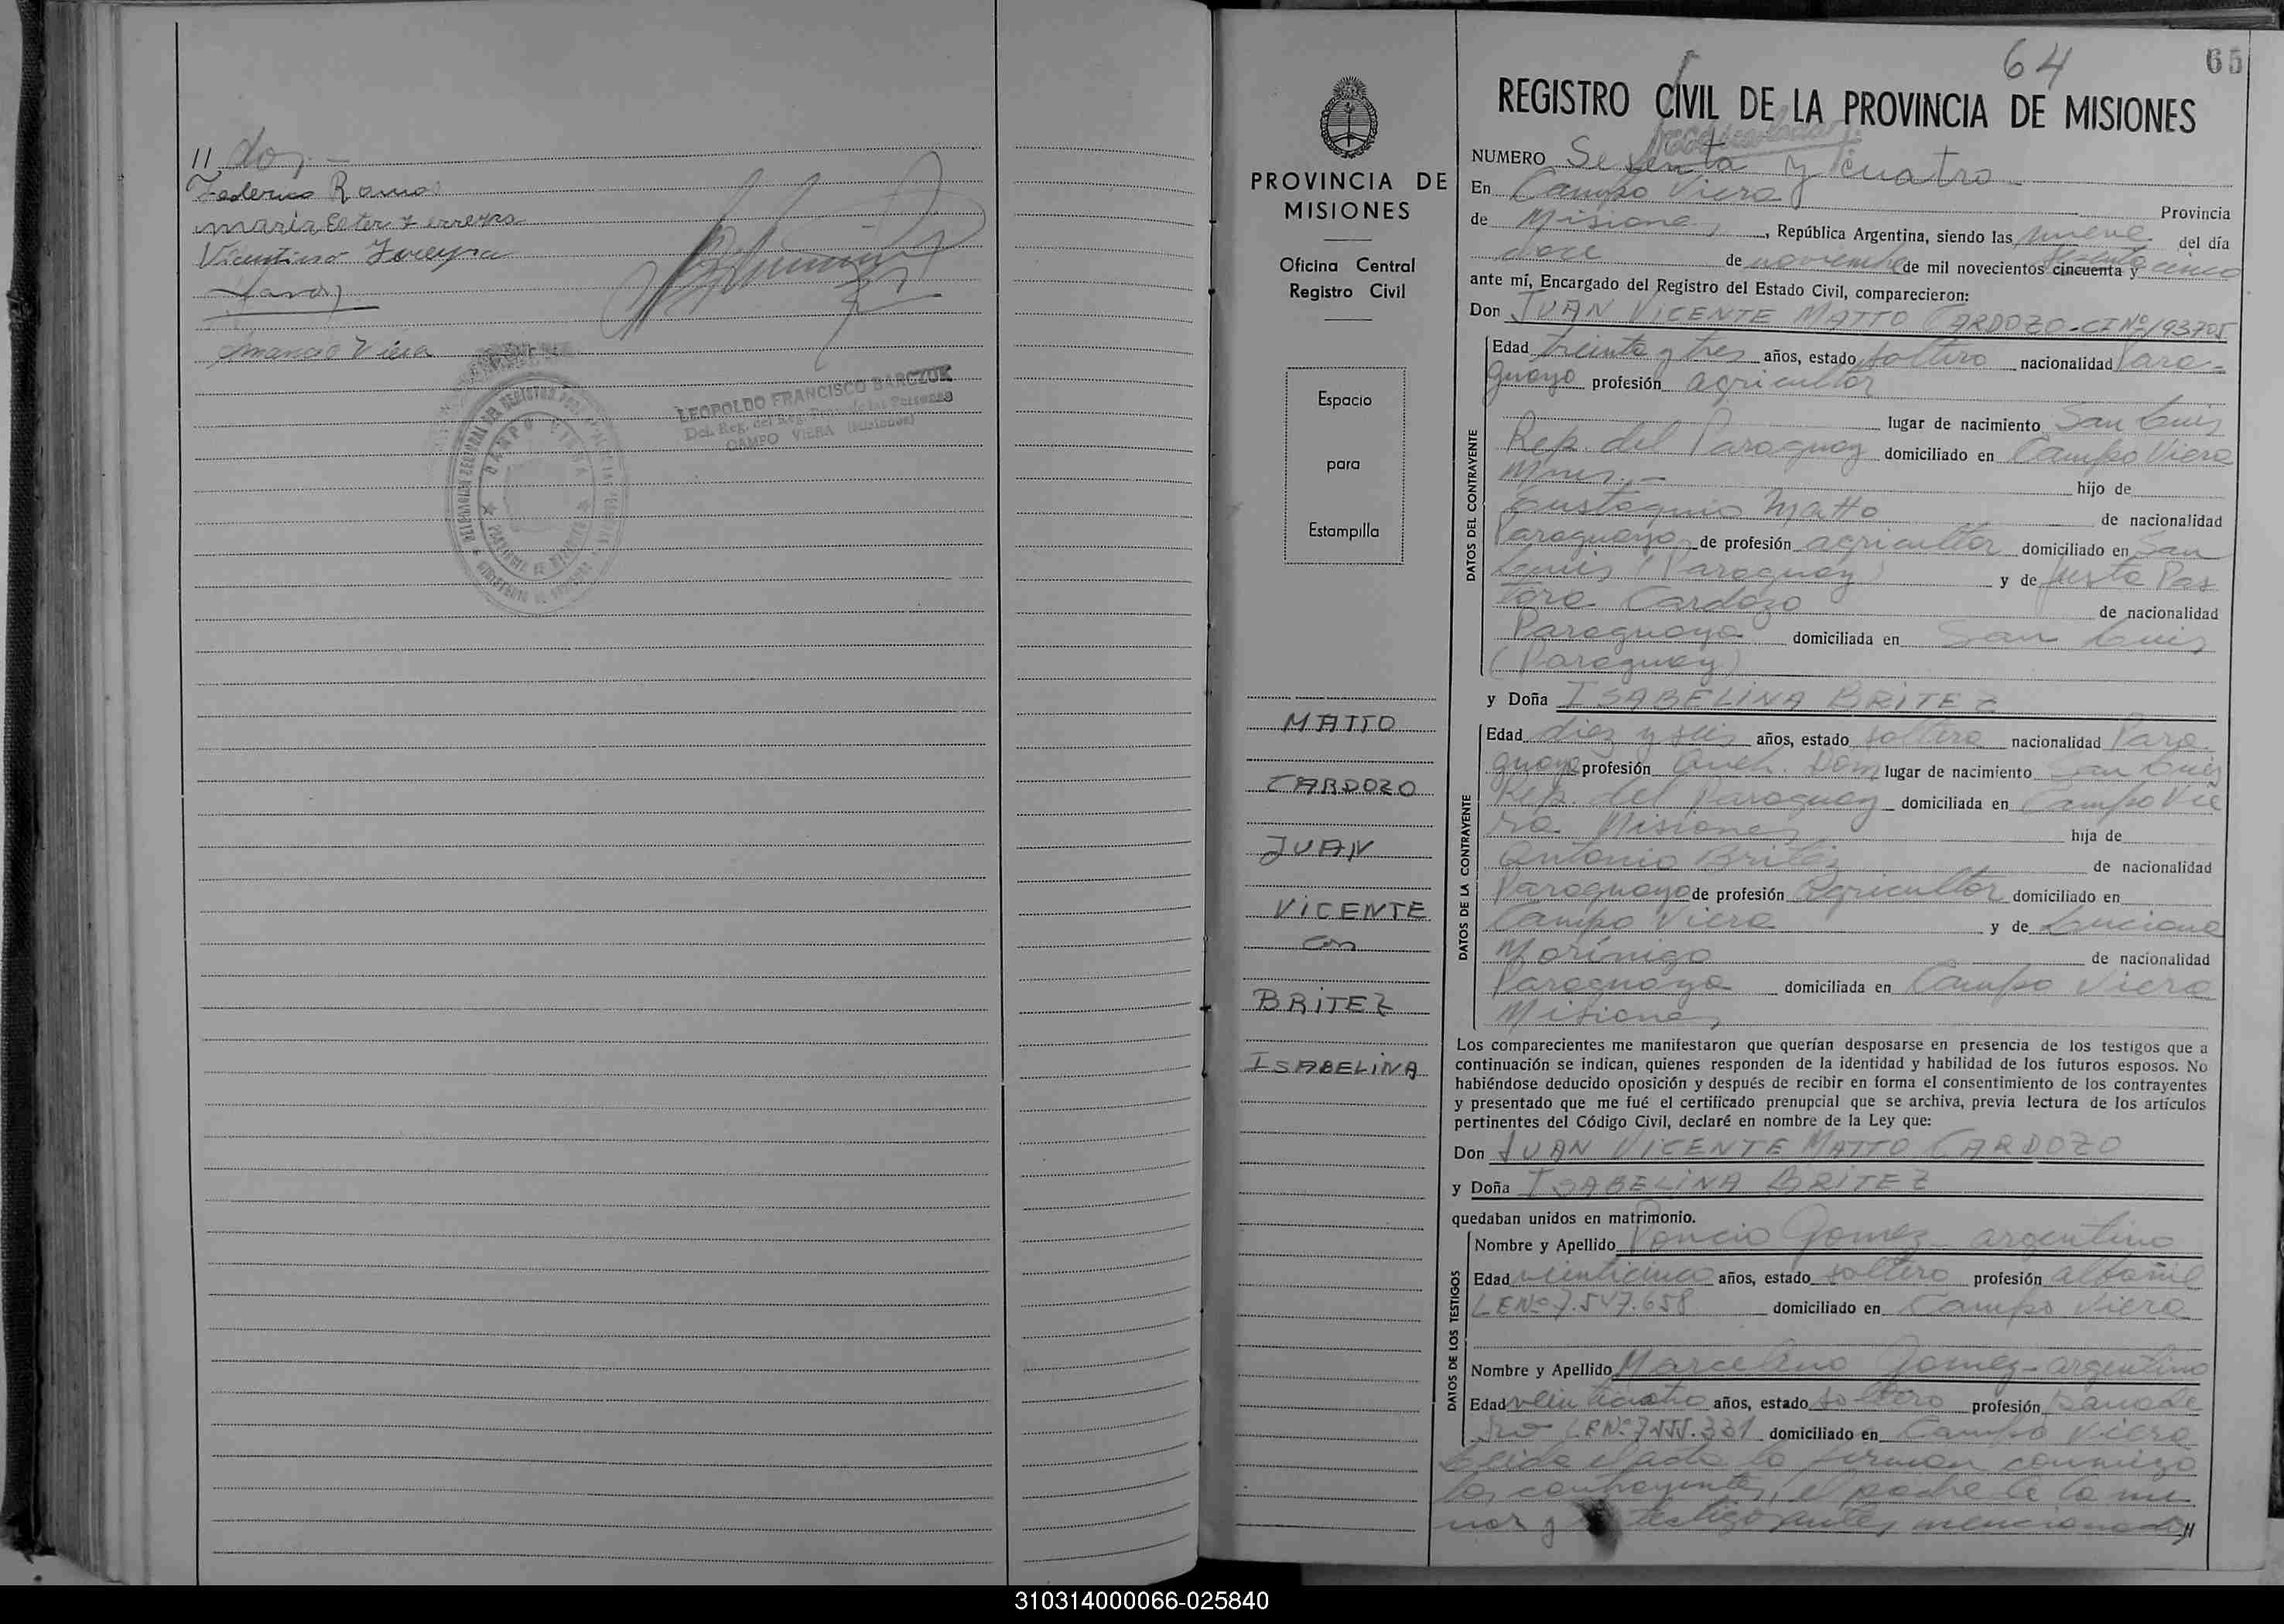 // dos.-
Federico Ramos
maria Ester Ferreyra
Vicentino Ferreyra
Amancio Viera
LEOPOLDO FRANCISCO BARCZUK
Del. Reg. del Reg. Prov. de las Personas
CAMPO VIERA (Misiones)
CAMPO VIERA
PROVINCIA DE MISIONES
PROVINCIA DE
MISIONES
Oficina Central
Registro Civil
Espacio
para
Estampilla
MATTO
CARDOZO
JUAN
VICENTE
con
BRITEZ
ISABELINA
64
65
REGISTRO CIVIL DE LA PROVINCIA DE MISIONES
NUMERO Sesenta y cuatro.-
En Campo Viera Provincia
de Misiones, República Argentina, siendo las nueve del día
doce de noviembre de mil novecientos cincuenta y sesenta cinco
ante mí, Encargado del Registro del Estado Civil, comparecieron:
Don JUAN VICENTE MATTO CARDOZO-CI Nº 193705
DATOS DEL CONTRAYENTE
Edad treinta y tres años, estado soltero nacionalidad Para-
guaya profesión agricultor
lugar de nacimiento San Luis
Rep. del Paraguay domiciliado en Campo Viera
Mnes.- hijo de
Eustaquio Matto de nacionalidad
Paraguaya de profesión agricultor domiciliado en San
Luis (Paraguay) y de Justa Pas
tora Cardozo de nacionalidad
Paraguaya domiciliada en San Luis
(Paraguay)
y Doña ISABELINA BRITEZ
DATOS DE LA CONTRAYENTE
Edad diez y seis años, estado soltera nacionalidad Para-
guaya profesión Queh. Dom lugar de nacimiento San Luis
Rep. del Paraguay domiciliada en Campo Vie
ra Misiones hija de
Antonio Britez de nacionalidad
Paraguaya de profesión Agricultor domiciliado en
Campo Viera y de Luciana
Morínigo de nacionalidad
Paraguaya domiciliada en Campo Viera
Misiones
Los comparecientes me manifestaron que querían desposarse en presencia de los testigos que a
continuación se indican, quienes responden de la identidad y habilidad de los futuros esposos. No
habiéndose deducido oposición y después de recibir en forma el consentimiento de los contrayentes
y presentado que me fué el certificado prenupcial que se archiva, previa lectura de los artículos
pertinentes del Código Civil, declaré en nombre de la Ley que:
Don JUAN VICENTE MATTO CARDOZO
y Doña ISABELINA BRITEZ
quedaban unidos en matrimonio.
DATOS DE LOS TESTIGOS
Nombre y Apellido Poncio Gomez - argentino
Edad veinticinco años, estado soltero profesión albañil
LE Nº 7.547.658 domiciliado en Campo Viera
Nombre y Apellido Marcelino Gomez - argentino
Edad veinticuatro años, estado soltero profesión panade
ro LE Nº 7.555.331 domiciliado en Campo Viera
Leida el acta la firman conmigo
los contrayentes, el padre de la me
nor y testigos antes mencionados//
310314000066-025840